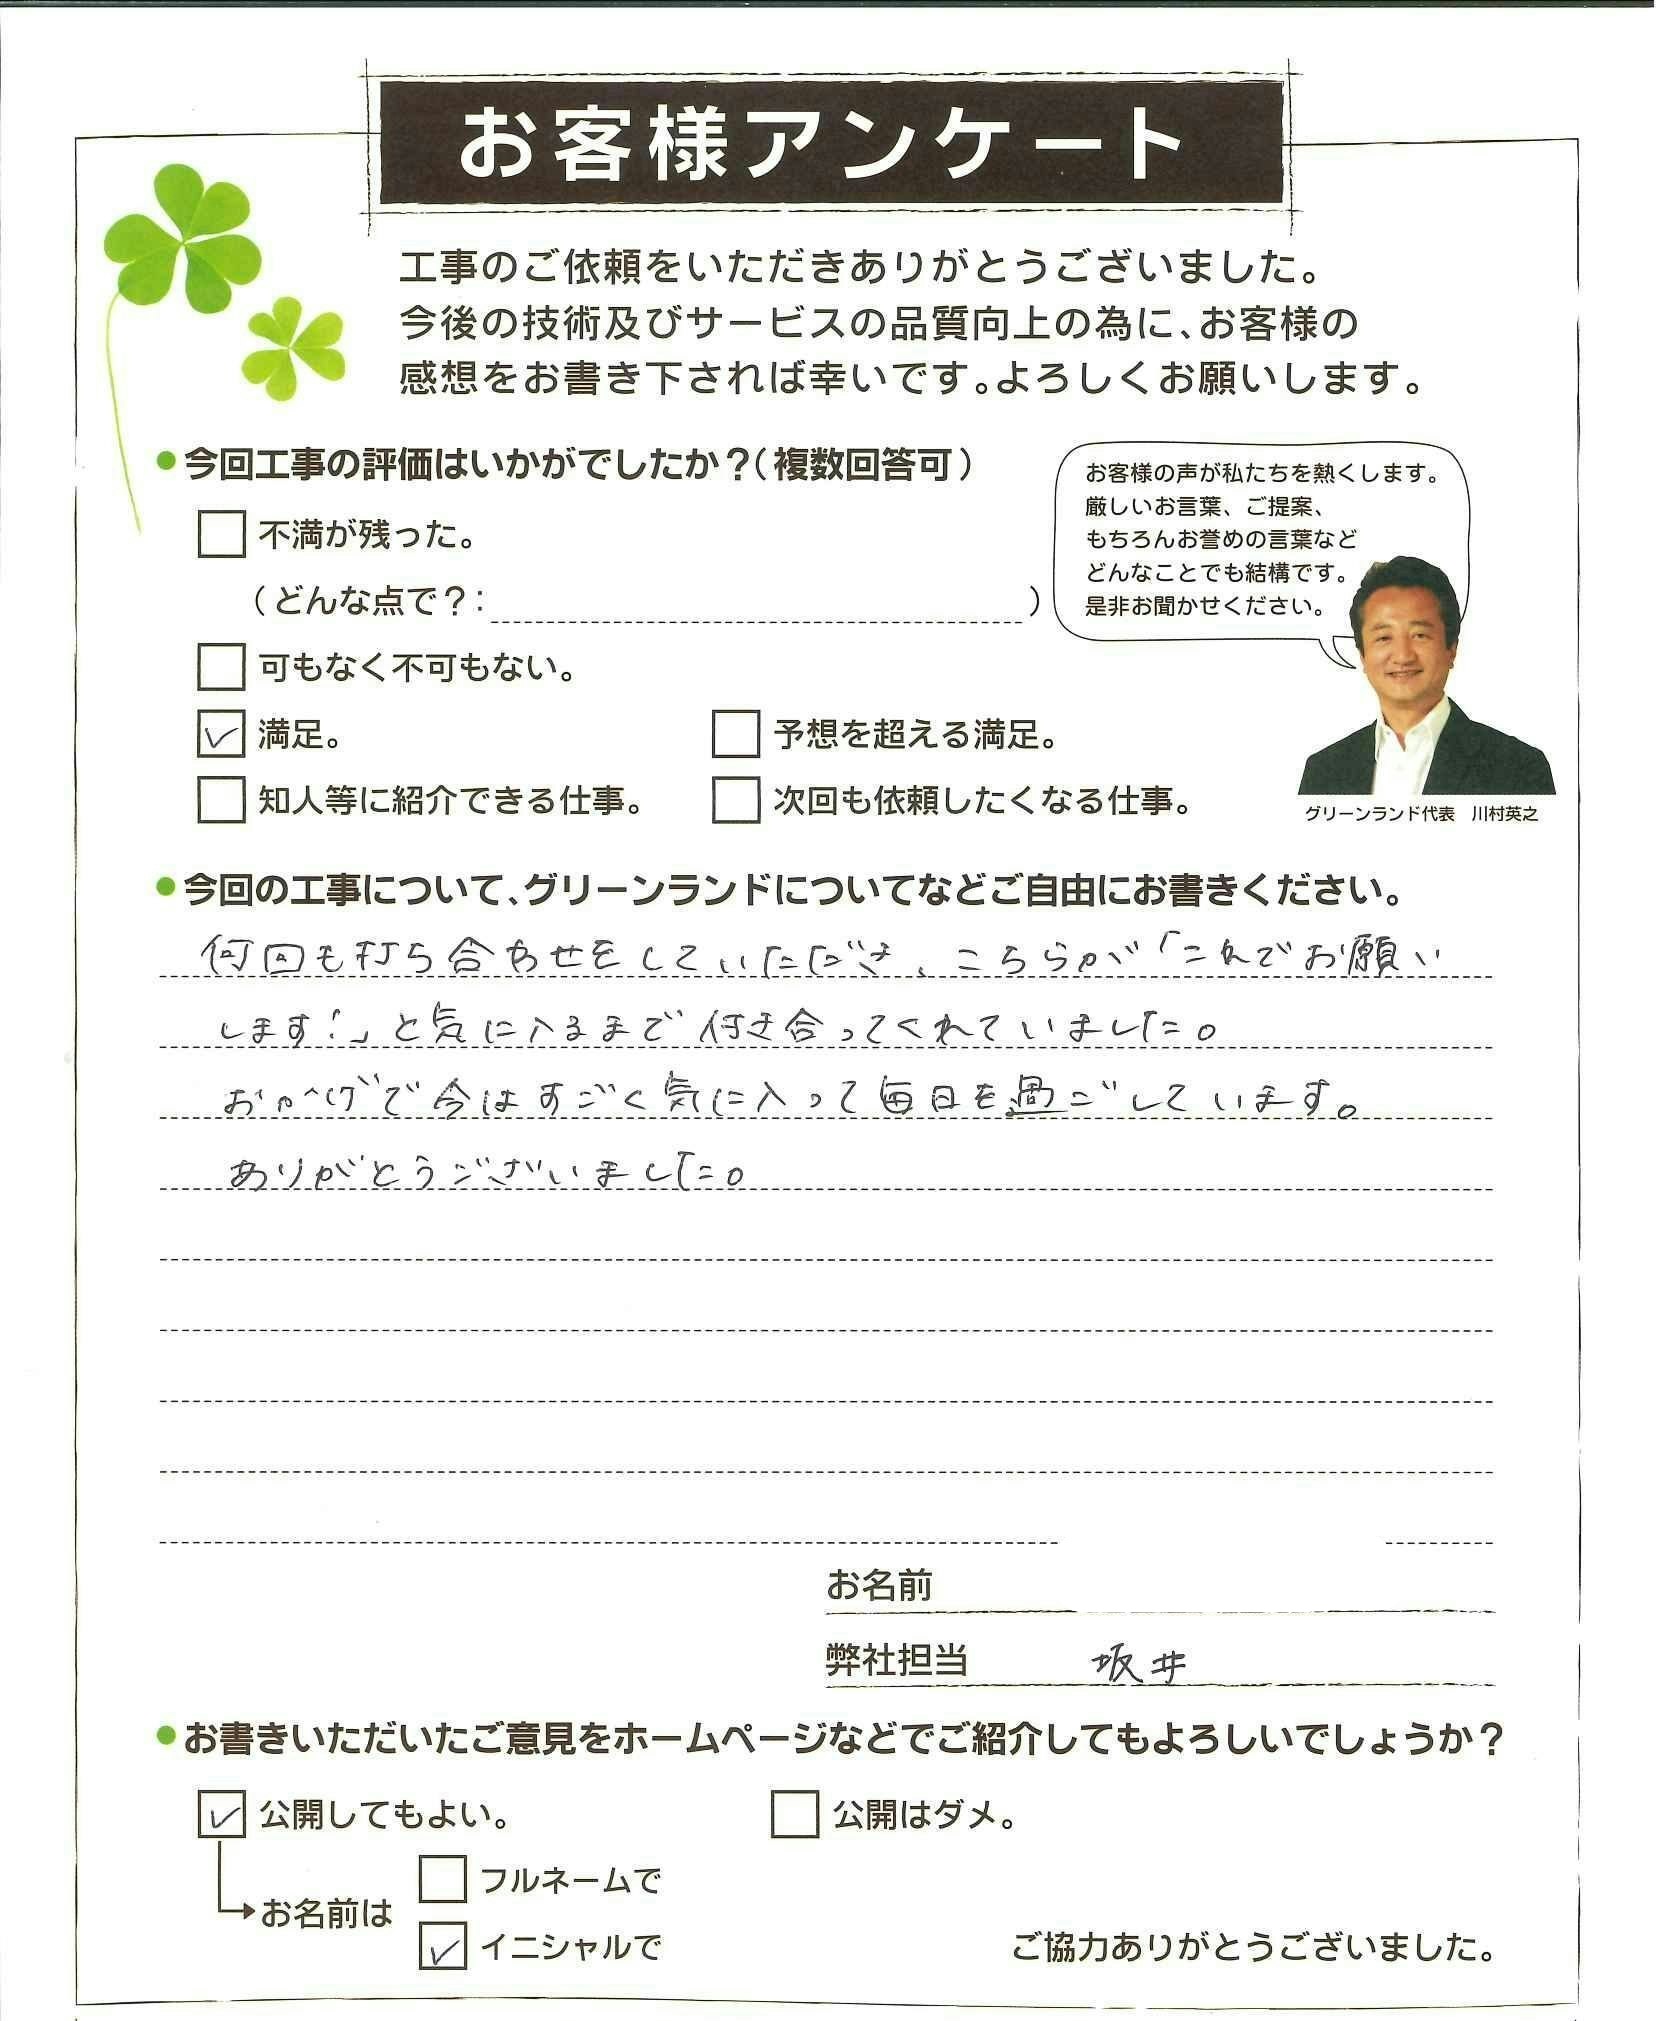 お客様アンケート
工事のご依頼をいただきありがとうございました。
今後の技術及びサービスの品質向上の為に、お客様の
感想をお書き下されば幸いです。よろしくお願いします。
●今回工事の評価はいかがでしたか？（複数回答可）
不満が残った。
（どんな点で？：　　　）
可もなく不可もない。
満足。
予想を超える満足。
知人等に紹介できる仕事。
次回も依頼したくなる仕事。
お客様の声が私たちを熱くします。
厳しいお言葉、ご提案、
もちろんお誉めの言葉など
どんなことでも結構です。
是非お聞かせください。
グリーンランド代表　川村英之
●今回の工事について、グリーンランドについてなどご自由にお書きください。
何回も打ち合わせをしていただき、こちらが「これでお願い
します!」と気に入るまで付き合ってくれていました。
おかげで今はすごく気に入って毎日を過ごしています。
ありがとうございました。
お名前
弊社担当　坂井
●お書きいただいたご意見をホームページなどでご紹介してもよろしいでしょうか？
公開してもよい。
公開はダメ。
お名前は
フルネームで
イニシャルで
ご協力ありがとうございました。